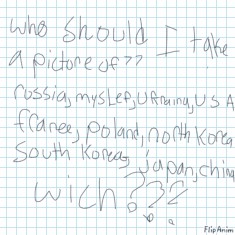 who should I take
a picture of??
russia, myslef, Ukraing, USA
franee, poland, north Korea
South Korea, japan, china
wich???
FlipAnim